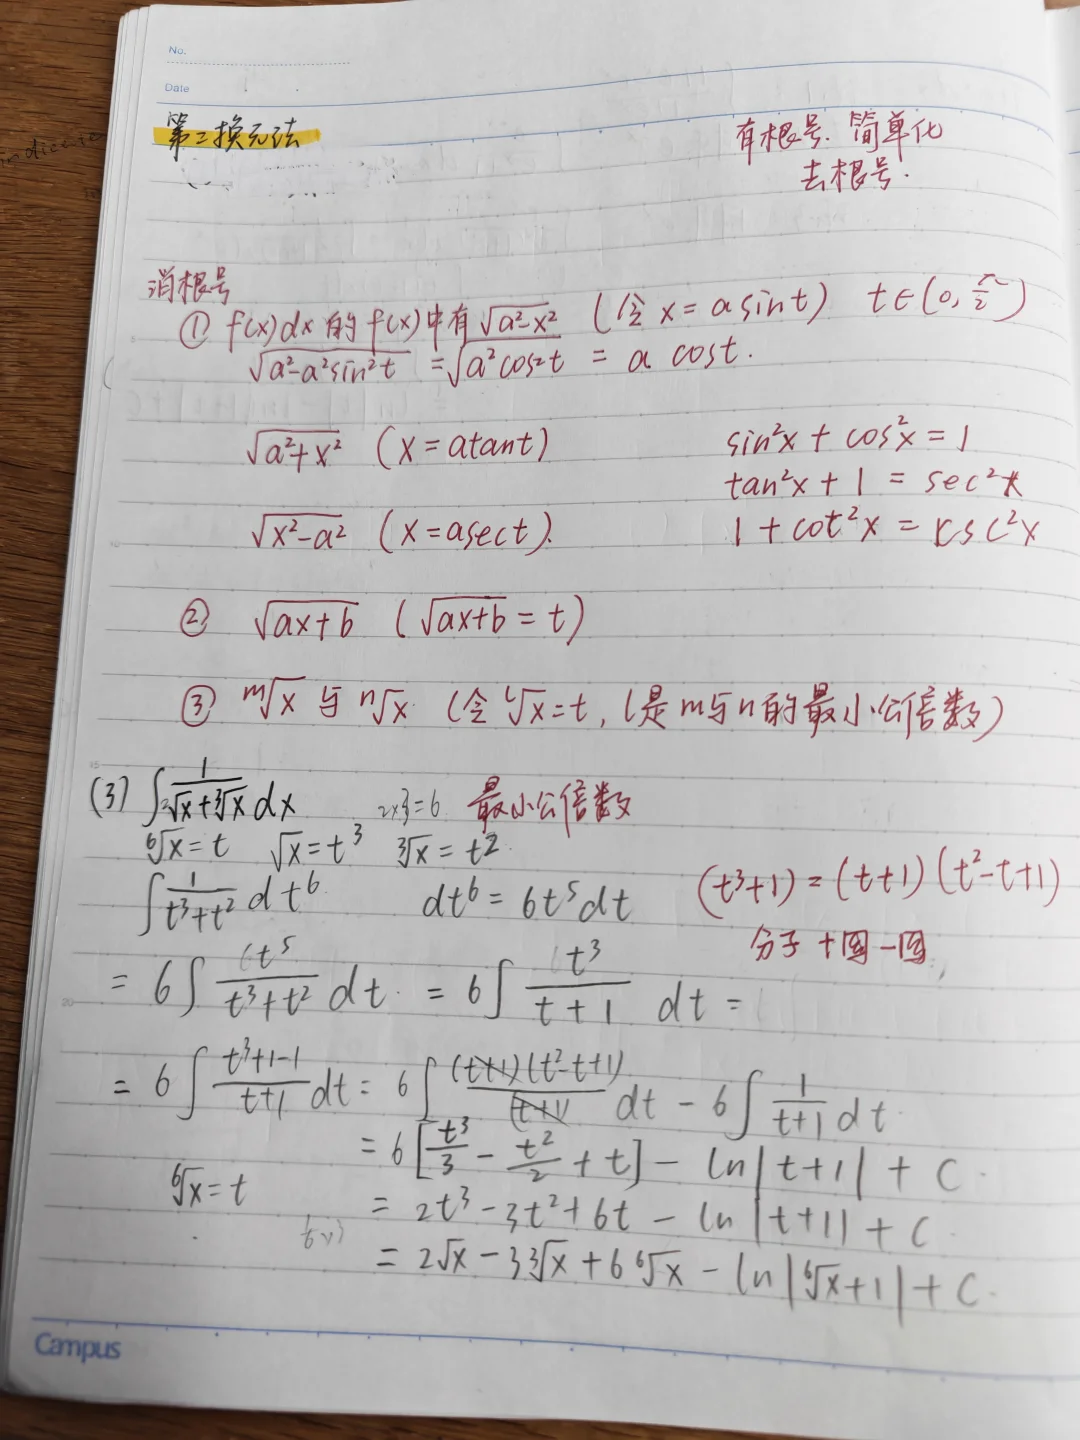 No.
Date
第二换元法
有根号. 简单化
去根号.
消根号
① f(x)dx 的 f(x)中有 √(a²-x²) (令 x = a sint) t∈(0, π/2)
√(a²-a²sin²t) = √(a²cos²t) = a cost.
√(a²+x²) (x = atant)
sin²x + cos²x = 1
tan²x + 1 = sec²x
√(x²-a²) (x = asect).
1 + cot²x = csc²x
② √(ax+b) (√(ax+b) = t)
③ ᵐ√x 与 ⁿ√x (令 ˡ√x = t, l是m与n的最小公倍数)
(3) ∫ 1/(²√x+³√x) dx 2×3=6 最小公倍数
⁶√x = t √x = t³ ³√x = t²
∫ 1/(t³+t²) dt⁶ dt⁶ = 6t⁵dt
(t³+1) = (t+1)(t²-t+1)
分子 +图 -图
= 6∫ t⁵/(t³+t²) dt. = 6∫ t³/(t+1) dt =
= 6∫ (t³+1-1)/(t+1) dt = 6∫ (t+1)(t²-t+1)/(t+1) dt - 6∫ 1/(t+1) dt.
= 6[t³/3 - t²/2 + t] - ln|t+1| + C.
⁶√x = t
= 2t³ - 3t² + 6t - ln|t+1| + C.
= 2√x - 3³√x + 6⁶√x - ln|⁶√x+1| + C.
Campus